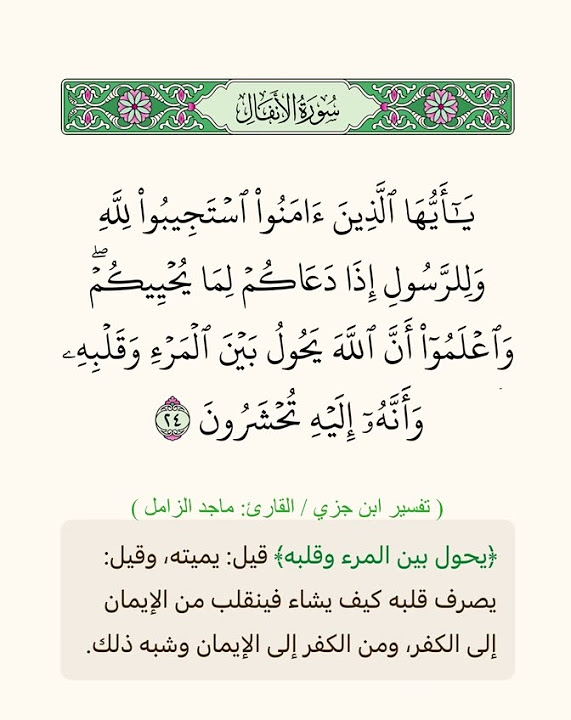 سُورَةُ الأَنفَالِ
يَـٰٓأَيُّهَا ٱلَّذِينَ ءَامَنُوا۟ ٱسْتَجِيبُوا۟ لِلَّهِ
وَلِلرَّسُولِ إِذَا دَعَاكُمْ لِمَا يُحْيِيكُمْ ۖ
وَٱعْلَمُوٓا۟ أَنَّ ٱللَّهَ يَحُولُ بَيْنَ ٱلْمَرْءِ وَقَلْبِهِۦ
وَأَنَّهُۥٓ إِلَيْهِ تُحْشَرُونَ ٢٤
( تفسير ابن جزي / القارئ: ماجد الزامل )
﴿يحول بين المرء وقلبه﴾ قيل: يميته، وقيل:
يصرف قلبه كيف يشاء فينقلب من الإيمان
إلى الكفر، ومن الكفر إلى الإيمان وشبه ذلك.